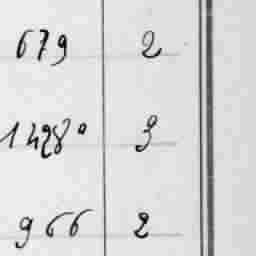 679 2
1428° 3
966 2